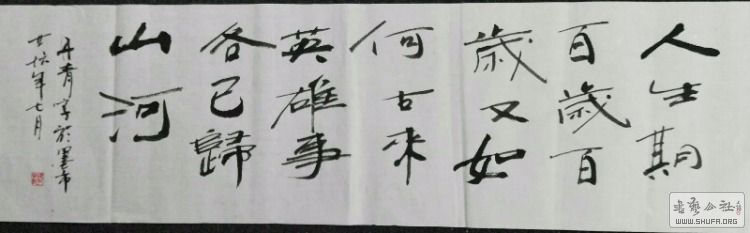 人生期
百歲百
歲又如
何古來
英雄事
各已歸
山河
丹青字於墨市
廿拾年七月
書藝公社
WWW.SHUFA.ORG